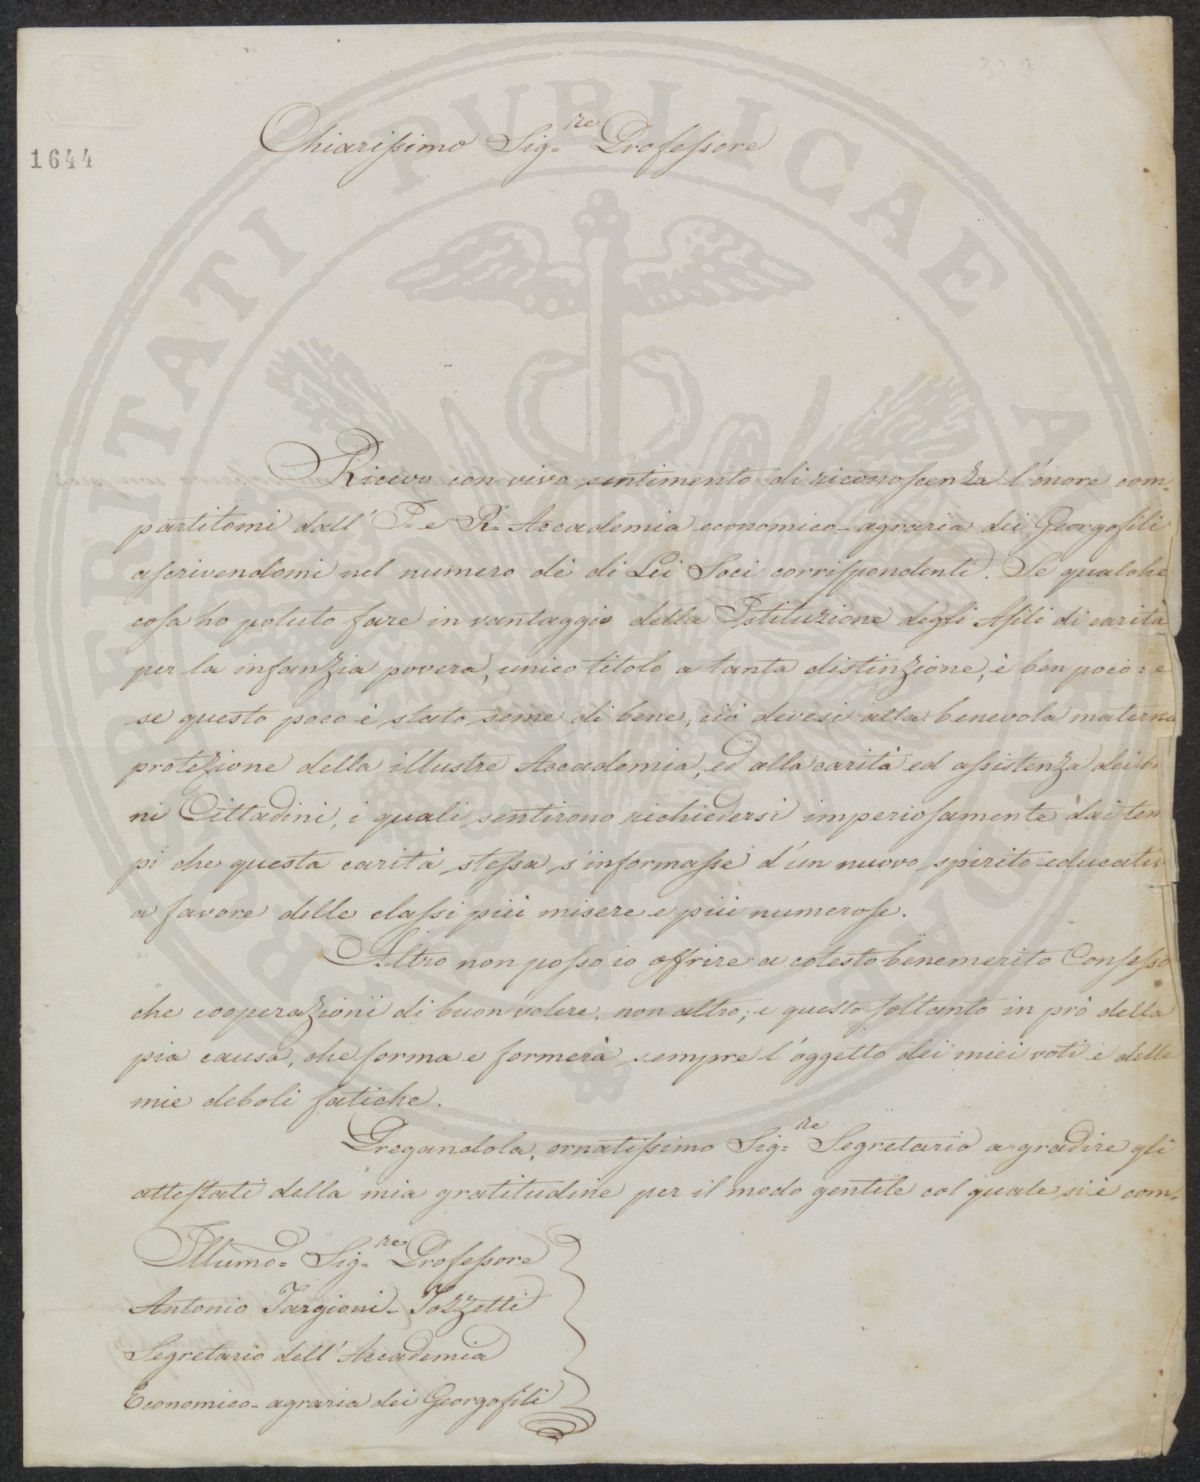 PROSPERITATI PVBLICAE AVGENDAE
1644
Chiarissimo Sig.re Professore
Ricevo con vivo sentimento di riconoscenza l'onore com=
partitomi dall' I. e R. Accademia economico-agraria dei Georgofili
ascrivendomi nel numero de' di Lei Soci corrispondenti. Se qualche
cosa ho potuto fare in vantaggio della Istituzione degli Asili di carità
per la infanzia povera, unico titolo a tanta distinzione, è ben poco: e
se questo poco è stato seme di bene, ciò devesi alla benevola materna
protezione della illustre Accademia, ed alla carità ed assistenza dei
ni Cittadini, i quali sentirono richiedersi imperiosamente dai tem
pi che questa carità stessa s'informasse d'un nuovo spirito educativo
a favore delle classi più misere e più numerose.
Altro non posso io offrire a cotesto benemerito Consesso
che cooperazioni di buon volere, non altro; e questo soltanto in prò della
pia causa, che forma e formerà sempre l'oggetto dei miei voti e delle
mie deboli fatiche.
Pregandola, ornatissimo Sig.re Segretario a gradire gli
attestati della mia gratitudine per il modo gentile col quale si è com=
Illumo. Sig.re Professore
Antonio Targioni-Tozzetti
Segretario dell' Accademia
Economico-agraria dei Georgofili